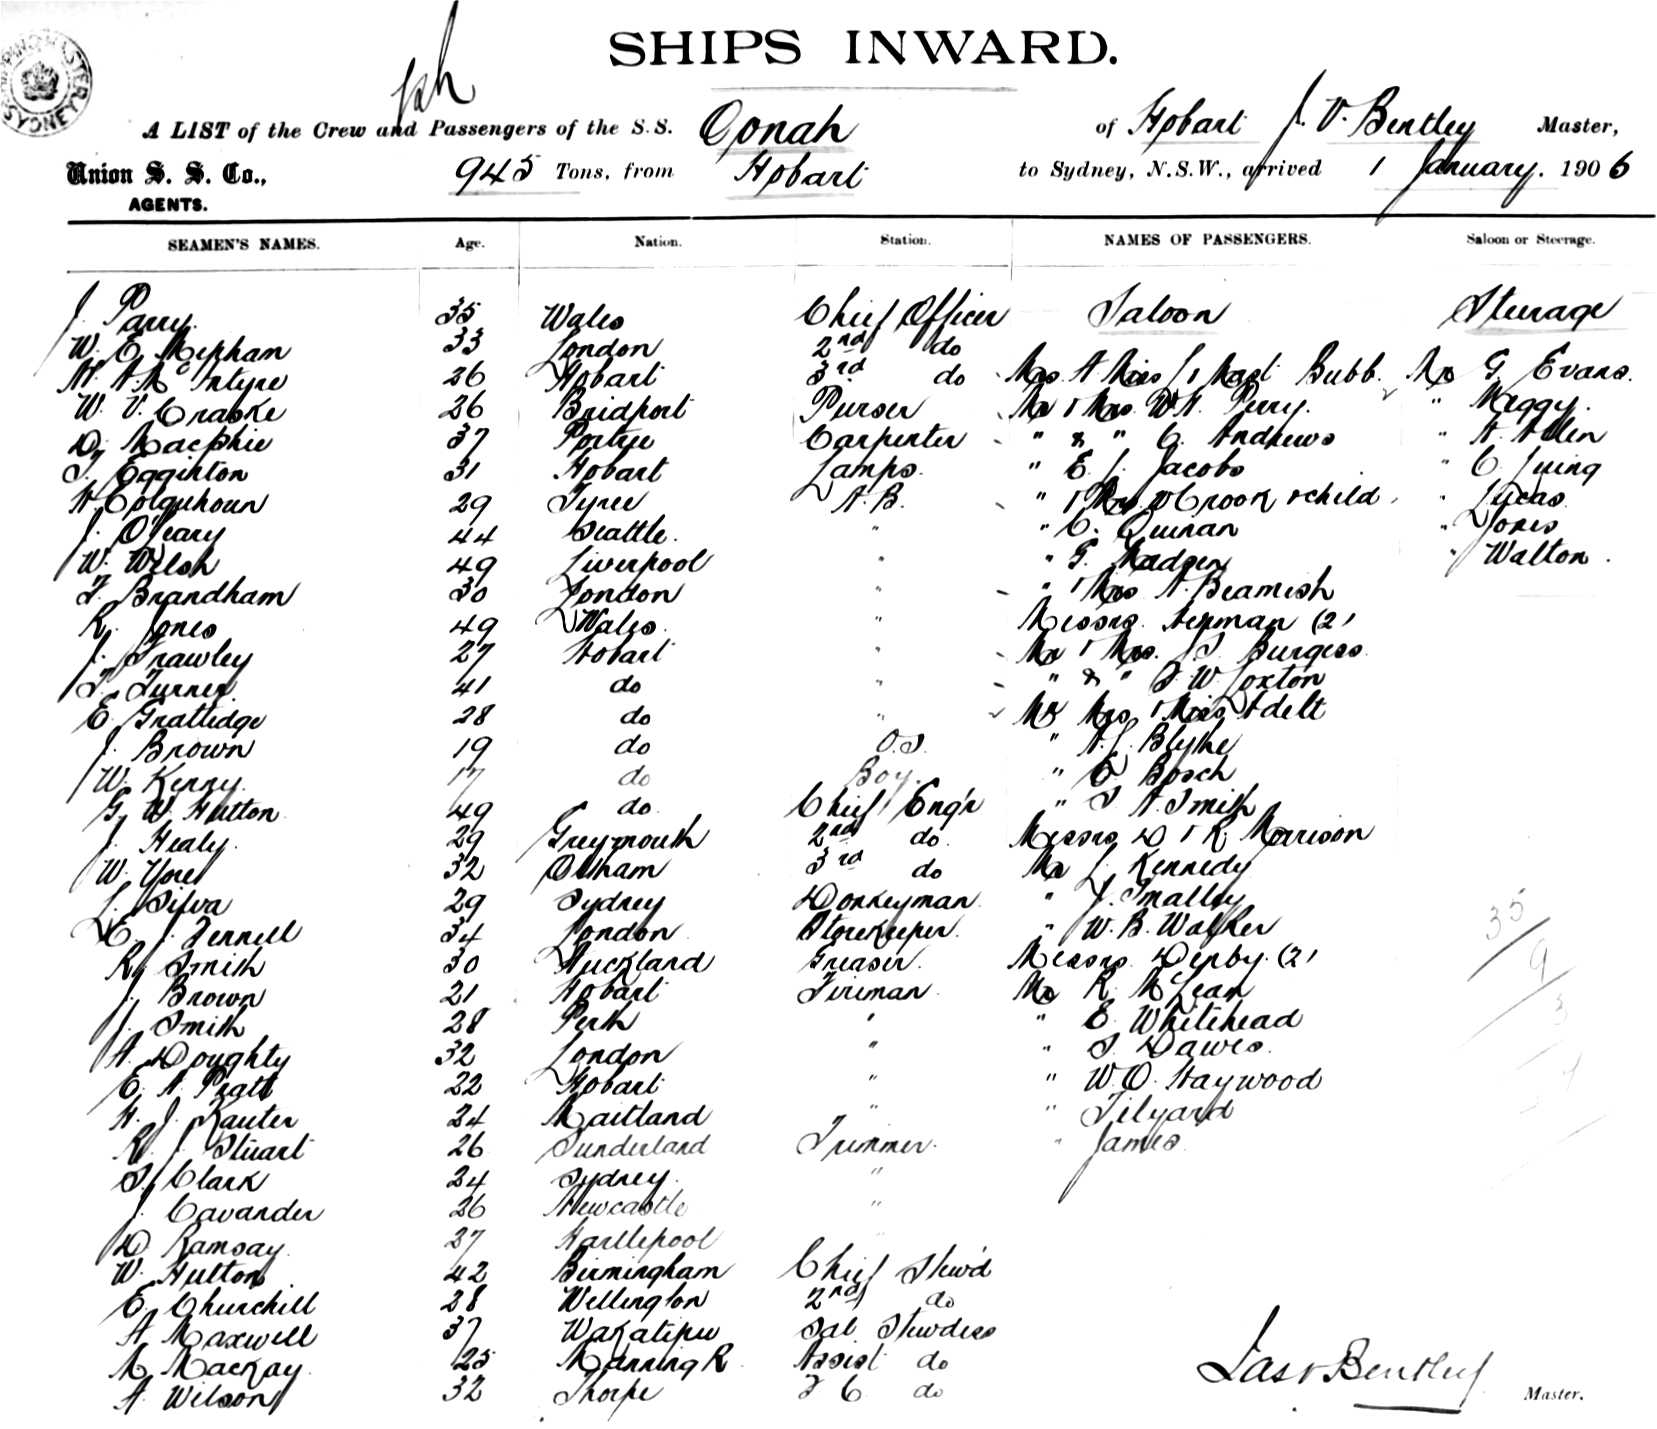 SHIPS INWARD.
A LIST of the Crew and Passengers of the S.S. Oonah of Hobart J. V. Bentley Master,
Union S. S. Co., 945 Tons, from Hobart to Sydney, N.S.W., arrived 1 January. 1906
AGENTS.
SEAMEN'S NAMES. Age. Nation. Station. NAMES OF PASSENGERS. Saloon or Steerage.
J. Parry. 35 Wales Chief Officer Saloon Steerage
W. E. Mepham 33 London 2nd do
H. A. McIntyre 26 Hobart 3rd do Mrs. A. Miss J & Mast Bubb. Mr G. Evans.
W. V. Craske 26 Bridport Purser Mr & Mrs. W. A. Perry. " Meggy.
D. Macphie 37 Carpenter " & " C. Andrews " A. Allen
T. Egginton 31 Hobart Lamps. " E. J. Jacobs " C.
H. Colquhoun 29 Tyree A.B. " & Mrs. Crook & child " Lucas
J. O'Leary 44 Seattle. " " C. Quinan " Jones
W. Welsh 49 Liverpool " " G. Madsen " Walton.
F. Brandham 30 London " " & Mrs A. Beamish
R. Jones 49 Wales. " Messrs. (2)
J. Frawley 27 Hobart " Mr & Mrs. J. Burgess.
T. Turner. 41 do " " & " W. Loxton
E. Gratlidge 28 do " Mr Mrs & Miss Adelt
J. Brown 19 do O.S. " A. J. Blythe
W. Kenny. 17 do Boy. " E. Bosch
G. W. Hutton 49 do. Chief Eng'r " S. A. Smith
J. Healy. 29 Greymouth 2nd do. Messrs D & R Morrison
W. Yore 32 Oldham 3rd do Mr J. Kennedy
J. Silva 29 Sydney Donkeyman. " J. Smalley
C. J. Fennell 34 London Storekeeper. " W. B. Walker
R. Smith 30 Auckland Greaser. Messrs. Derby. (2)
J. Brown 21 Hobart Fireman. Mr R. McLean
J. Smith 28 Perth " " E. Whitehead
A. Doughty 32 London " " S. Dawes.
E. A. Pratt 22 Hobart " " W. O. Haywood
H. J. Kauter 24 Maitland " " Tilyard
R. J. Stuart 26 Sunderland Trimmer. " James
S. Clark 24 Sydney. "
J. Cavander 26 Newcastle "
D. Ramsay. 27 Hartlepool
W. Hutton 42 Birmingham Chief Stew'd
E. Churchill 28 Wellington 2nd do
A. Maxwell 37 Wakatipu Sal. Stewdess
M. Mackay. 25 Manning R. Assist do
A. Wilson 32 Thorpe F C do
Jas V Bentley
Master.